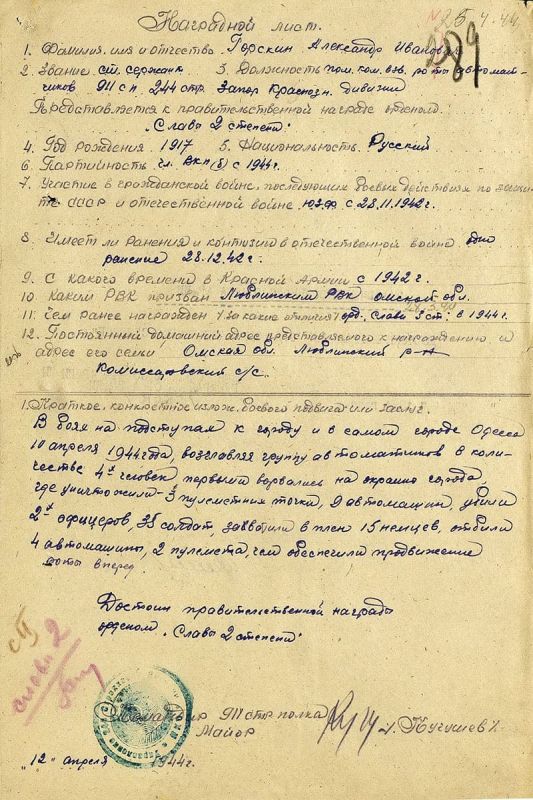 Наградной лист.
25 4.44
289
1. Фамилия, имя и отчество Горскин Александр Иванович
2. Звание ст. сержант 3. Должность пом. ком. взв. роты автомат-
чиков 911 сп. 244 стр. Запор. Краснозн. дивизии
Представляется к правительственной награде орденом
"Слава 2 степени"
4. Год рождения 1917 5. Национальность Русский
6. Партийность чл. ВКП(б) с 1944г.
7. Участие в гражданской войне, последующих боевых действиях по защи-
те СССР и отечественной войне ю.з.ф с 28.11.1942г.
8. Имеет ли ранения и контузии в отечественной войне одно
ранение 28.12.42г.
9. С какого времени в Красной Армии с 1942г.
10 Каким РВК призван Люблинским РВК Омской обл.
11. Чем ранее награжден /за какие отличия/ орд. Слава 3 ст. в 1944г.
12. Постоянный домашний адрес представляемого к награждению и
адрес его семьи Омская обл. Люблинский р-н
Комиссаровский с/с.
1. Краткое, конкретное излож. боевого подвига или заслуг.
В боях на подступах к городу и в самом городе Одесса
10 апреля 1944 года, возглавляя группу автоматчиков в коли-
честве 4х человек первыми ворвались на окраину города,
где уничтожили 3 пулеметных точки, 9 автомашин, убили
2х офицеров, 35 солдат, захватили в плен 15 немцев, отбили
4 автомашины, 2 пулемета, чем обеспечили продвижение
роты вперед
Достоин правительственной награды
орденом "Слава 2 степени"
слава 2
Командир 911 стр. полка
Майор /Кугушев/
"12" апреля 1944г.